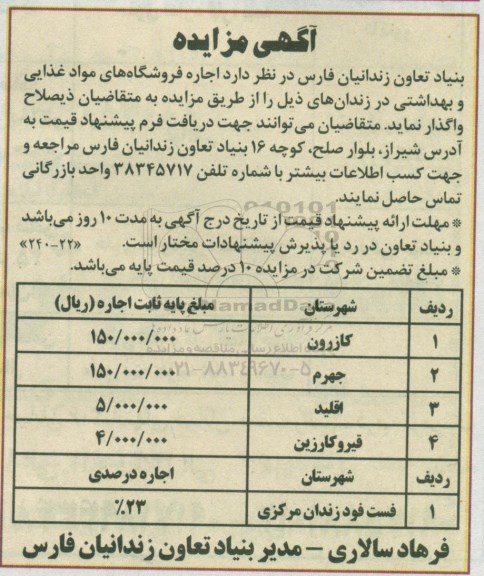 آگهی مزایده
بنیاد تعاون زندانیان فارس در نظر دارد اجاره فروشگاه‌های مواد غذایی
و بهداشتی در زندان‌های ذیل را از طریق مزایده به متقاضیان ذیصلاح
واگذار نماید. متقاضیان می‌توانند جهت دریافت فرم پیشنهاد قیمت به
آدرس شیراز، بلوار صلح، کوچه ۱۶ بنیاد تعاون زندانیان فارس مراجعه و
جهت کسب اطلاعات بیشتر با شماره تلفن ۳۸۳۴۵۷۱۷ واحد بازرگانی
تماس حاصل نمایند.
* مهلت ارائه پیشنهاد قیمت از تاریخ درج آگهی به مدت ۱۰ روز می‌باشد
و بنیاد تعاون در رد یا پذیرش پیشنهادات مختار است. «۲۲-۲۴۰»
* مبلغ تضمین شرکت در مزایده ۱۰ درصد قیمت پایه می‌باشد.
ردیف شهرستان مبلغ پایه ثابت اجاره (ریال)
۱ کازرون ۱۵۰/۰۰۰/۰۰۰
۲ جهرم ۱۵۰/۰۰۰/۰۰۰
۳ اقلید ۵/۰۰۰/۰۰۰
۴ قیروکارزین ۴/۰۰۰/۰۰۰
ردیف شهرستان اجاره درصدی
۱ فست فود زندان مرکزی ٪۲۳
فرهاد سالاری – مدیر بنیاد تعاون زندانیان فارس
۰۲۱-۸۸۳۴۹۶۷۰-۵